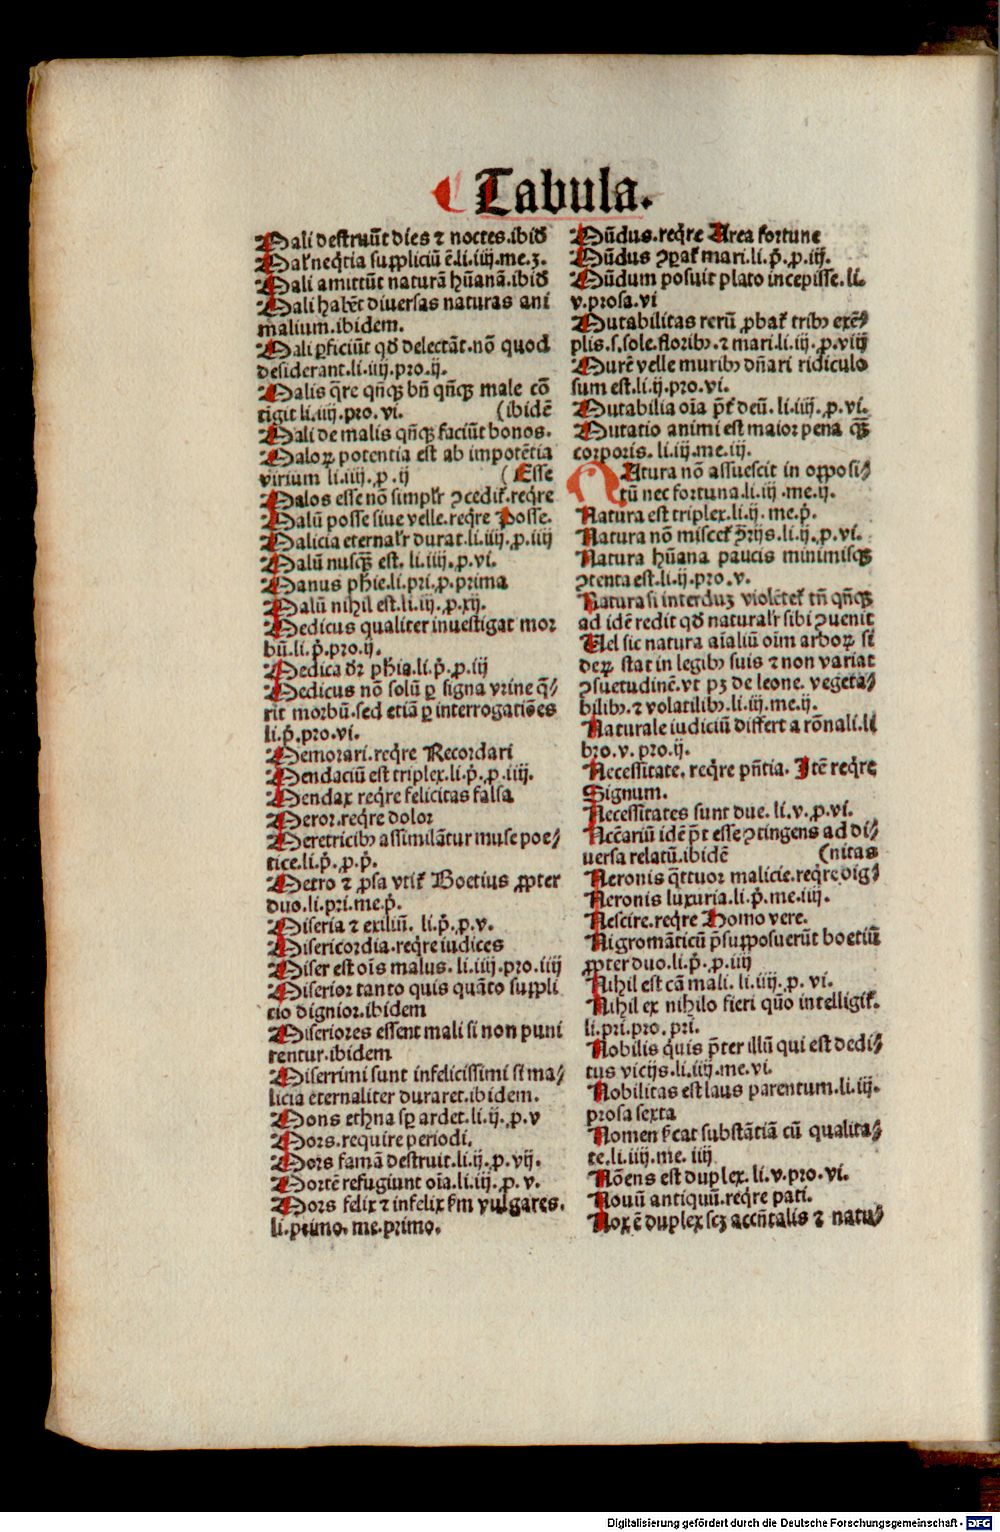 Tabula.
Mali destruūt dies ⁊ noctes.ibid̄
Mal' neq̄tia suppliciū ē.li.iiij.me.3.
Mali amittūt naturā hūanā.ibid̄
Mali habēt diuersas naturas ani
malium.ibidem.
Mali ꝑficiūt qd̄ delectāt.nō quod
desiderant.li.iiij.pro.ij.
Malis q̄re qn̄qꝫ bn̄ qn̄qꝫ male cō
tīgit li.iiij.pro.vi. (ibidē
Mali de malis qn̄qꝫ faciūt bonos.
Maloꝝ potentia est ab impotētia
virium li.iiij.ꝓ.ij (Esse
Malos esse nō simplr̄ ꝯcedit̄.req̄re
Malū posse siue velle.req̄re Posse.
Malicia eternalr̄ durat.li.iiij.ꝓ.iiij
Malū nusqꝫ est. li.iiij.ꝓ.vi.
Manus phie.li.pri.ꝓ.prima
Malū nihil est.li.iij.ꝓ.xij.
Medicus qualiter inuestigat mor
bū.li.p̄.pro.ij.
Medica dr̄ phia.li.p̄.ꝓ.iij
Medicus nō solū ꝑ signa vrine q̄/
rit morbū.sed etiā ꝑ interrogatiōes
li.p̄.pro.vi.
Memorari.req̄re Recordari
Mendaciū est triplex.li.p̄.ꝓ.iiij.
Mendax req̄re felicitas falsa
Meror.req̄re dolor
Meretricibꝫ assimilātur muse poe/
tice.li.p̄.ꝓ.p̄.
Metro ⁊ ꝓsa vtit̄ Boetius ꝓpter
duo.li.pri.me.p̄.
Miseria ⁊ exiliū. li.p̄.ꝓ.v.
Misericordia.req̄re iudices
Miser est oīs malus. li.iiij.pro.iiij
Miserior tanto quis quāto suppli
cio dignior.ibidem
Miseriores essent mali si non puni
rentur.ibidem
Miserrimi sunt infelicissimi si ma/
licia eternaliter duraret.ibidem.
Mons ethna sꝑ ardet.li.ij.ꝓ.v
Mors.require periodi.
Mors famā destruit.li.ij.ꝓ.vij.
Mortē refugiunt oīa.li.iij.ꝓ.v.
Mors felix ⁊ infelix fm vulgares.
li.primo.me.primo.
Mūdus.req̄re Area fortune
Mūdus ꝯꝑat̄ mari.li.p̄.ꝓ.iij.
Mūdum posuit plato incepisse.li.
v.prosa.vi
Mutabilitas rerū ꝓbat̄ tribꝫ exē/
plis.s.sole.floribꝫ.⁊ mari.li.iij.ꝓ.viij
Murē velle muribꝫ dn̄ari ridiculo
sum est.li.ij.pro.vi.
Mutabilia oīa p̄t̄ deū. li.iiij.ꝓ.vi.
Mutatio animi est maior pena qꝫ
corporis. li.iij.me.iij.
NAtura nō assuescit in opposi/
tū nec fortuna.li.iij.me.ij.
Natura est triplex.li.ij.me.p̄.
Natura nō miscet̄ ꝯrijs.li.ij.ꝓ.vi.
Natura hūana paucis minimisqꝫ
ꝯtenta est.li.ij.pro.v.
Natura si interduꝫ violētet̄ tn̄ qn̄qꝫ
ad idē redit qd̄ naturalr̄ sibi ꝯuenit
Uel sic natura aīaliū oīm arboꝝ si
deꝝ stat in legibꝫ suis ⁊ non variat
ꝯsuetudinē.vt pꝫ de leone. vegeta/
bilibꝫ.⁊ volatilibꝫ.li.iij.me.ij.
Naturale iudiciū differt a rōnali.li
bro.v.pro.ij.
Necessitate. req̄re pn̄tia. Itē req̄re
Signum.
Necessitates sunt due. li.v.ꝓ.vi.
Ncēariū idē p̄t esse ꝯtingens ad di/
uersa relatū.ibidē (nitas
Neronis q̄ttuor malicie.req̄re dig/
Neronis luxuria.li.p̄.me.iiij.
Nescire.req̄re Homo vere.
Nigromāticū p̄supposuerūt boetiū
ꝓpter duo.li.p̄.ꝓ.iiij
Nihil est cā mali. li.iiij.ꝓ.vi.
Nihil ex nihilo fieri quō intelligit̄.
li.pri.pro.pri.
Nobilis quis p̄ter illū qui est dedi/
tus vicijs.li.iij.me.vi.
Nobilitas est laus parentum.li.iij.
prosa sexta
Nomen s̄icat substātiā cū qualita/
te.li.iiij.me.iiij
Nōens est duplex. li.v.pro.vi.
Nouū antiquū.req̄re pati.
Nox ē duplex scꝫ accn̄talis ⁊ natu/
Digitalisierung gefördert durch die Deutsche Forschungsgemeinschaft - DFG